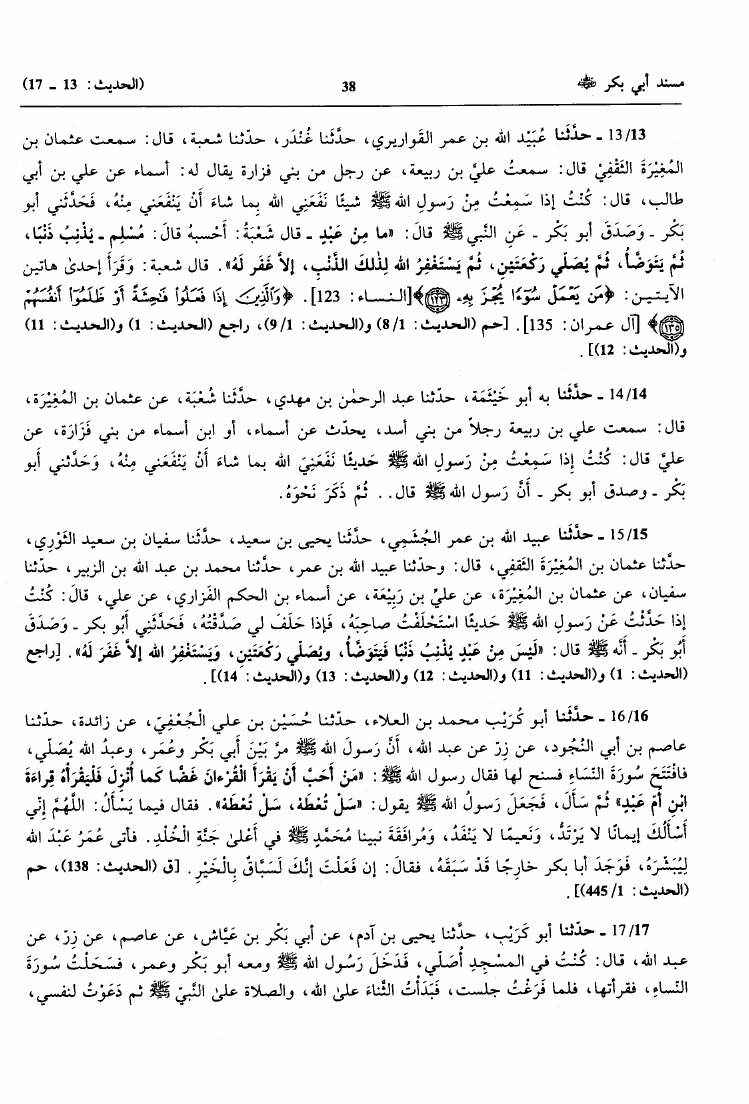 مسند أبي بكر ﷺ 38 (الحديث: 13 ـ 17)
13/13 ـ حدَّثنا عُبَيْد الله بن عمر القواريري، حدَّثنا غُنْدَر، حدّثنا شعبة، قال: سمعت عثمان بن
المُغِيْرَة الثَقفِيّ قال: سمعتُ عليَّ بن ربيعة، عن رجل من بني فزارة يقال له: أسماء عن علي بن أبي
طالب، قال: كُنْتُ إذا سَمِعْتُ مِنْ رَسولِ اللهﷺ شيئًا نَفَعَنِي الله بِما شاءَ أَنْ يَنْفَعَني مِنْهُ، فَحَدَّثَني أبو
بَكْر ـ وَصَدَقَ أبو بَكْر ـ عَنِ النَّبي ﷺ قالَ: «ما مِنْ عَبْدٍ ـ قال شَعْبَةُ: أحْسِبهُ قالَ: مُسْلِم ـ يُذْنِبُ ذَنْبًا،
ثُمَّ يَتَوَضَّأُ، ثُمَّ يُصَلِّي رَكْعَتَينِ، ثُمَّ يَسْتَغْفِرُ الله لِذَلكَ الذَّنْبِ، إلاَّ غَفَر لَهُ». قال شعبة: وَقَرَأَ إحدىٰ هاتين
الآيتين: ﴿مَن يَعْمَلْ سُوٓءًا يُجْزَ بِهِۦ ﴿١٢٣﴾﴾[النساء: 123]. ﴿وَالَّذِينَ إِذَا فَعَلُوا فَٰحِشَةً أَوْ ظَلَمُوٓا أَنفُسَهُمْ
﴿١٣٥﴾﴾ [آل عمران: 135]. [حم (الحديث: 8/1) و(الحديث: 9/1)، راجع (الحديث: 1) و(الحديث: 11)
و(الحديث: 12)].
14/14 ـ حدَّثنا به أبو خَيْثَمَة، حدّثنا عبد الرحمٰن بن مهدي، حدَّثنا شُعْبَة، عن عثمان بن المُغِيْرَة،
قال: سمعت علي بن ربيعة رجلاً من بني أسد، يحدّث عن أسماء، أو ابن أسماء من بني فَزَارَة، عن
عليَّ قال: كُنْتُ إذا سَمِعْتُ مِنْ رَسولِ اللهﷺ حَديثًا نَفَعَنِيَ الله بما شاءَ أَنْ يَنْفَعَني مِنْهُ، وَحَدَّثني أبو
بَكْر ـ وصدق أبو بكر ـ أنَّ رَسول اللهﷺ قال.. ثُمَّ ذَكَرَ نَحْوَهُ.
15/15 ـ حدَّثنا عبيد الله بن عمر الجُشَمي، حدَّثنا يحيى بن سعيد، حدَّثنا سفيان بن سعيد الثَّوْرِي،
حدَّثنا عثمان بن المُغِيْرَة الثَّقفِي، قال: وحدّثنا عبيد الله بن عمر، حدّثنا محمد بن عبد الله بن الزبير، حدّثنا
سفيان، عن عثمان بن المُغِيْرَة، عن عليّ بن رَبِيْعَة، عن أسماء بن الحكم الفَزاري، عن علي، قالَ: كُنْتُ
إذا حَدَّثْتُ عَنْ رَسولِ الله ﷺ حَديثًا اسْتَحْلَفْتُ صاحِبَهُ، فَإذا حَلَفَ لي صَدَّقْتُهُ، فَحَدَّثَنِي أَبُو بكر ـ وَصَدَقَ
أبُو بَكْر ـ أَنَّه ﷺ قال: «لَيْسَ مِنْ عَبْدٍ يُذْنِبُ ذَنْبًا فَيَتَوَضَّأُ، ويُصَلِّي رَكْعَتَينِ، وَيَسْتَغْفِرُ الله إلاَّ غَفَرَ لَهُ». [راجع
(الحديث: 1) و(الحديث: 11) و(الحديث: 12) و(الحديث: 13) و(الحديث: 14)].
16/16 ـ حدَّثنا أبو كُرَيْب محمد بن العلاء، حدّثنا حُسَيْن بن علي الْجُعْفِيّ، عن زائدة، حدّثنا
عاصم بن أبي النُجُود، عن زِرّ عن عبد الله، أَنَّ رَسولَ الله ﷺ مرَّ بَيْنَ أَبي بَكْر وعُمَر، وعبدُ الله يُصَلِّي،
فافْتَتَحَ سُورَةَ النِّساءِ فسنح لها فقال رسول الله ﷺ: «مَنْ أَحَبَّ أَنْ يَقْرَأَ القُرْءانَ غَضًّا كَما أُنْزِلَ فَلْيَقْرَأْهُ قِراءَةَ
ابْنِ أُم عَبْدٍ» ثُمَّ سَأَلَ، فَجَعَلَ رَسولُ الله ﷺ يقول: «سَلْ تُعْطَهْ، سَلْ تُعْطَهْ». فقال فيما يَسْأَلُ: اللَّهُمَّ إنِّي
أَسْأَلُكَ إيمانًا لا يَرْتَدُّ، وَنَعيمًا لا يَنْفَد، وَمُرافَقَةَ نبينا مُحَمَّدٍ ﷺ في أَعْلىٰ جَنَّةِ الْخُلْدِ. فأتى عُمَرُ عَبْدَ الله
لِيُبَشِّرَهُ، فَوَجَدَ أبا بكر خارِجًا قَدْ سَبَقَهُ، فقالَ: إن فَعَلْتَ إنَّكَ لَسَبَّاقٌ بِالْخَيْرِ. [ق (الحديث: 138)، حم
(الحديث: 445/1)].
17/17 ـ حدّثنا أبو كَرَيْب، حدَّثنا يحيى بن آدم، عن أبي بَكْر بن عَيَّاش، عن عاصم، عن زِرّ، عن
عبد الله، قال: كُنْتُ في المسْجِدِ أُصَلِّي، فَدَخَلَ رَسُول الله ﷺ ومعه أبو بَكْر وعمر، فَسَحَلْتُ سُورَةَ
النِّساءِ، فقرأتها، فلما فَرَغْتُ جلست، فَبَدَأْتُ الثَّناءَ علىٰ الله، والصلاة علىٰ النَّبيّ ﷺ ثم دَعَوْتُ لنفسي،